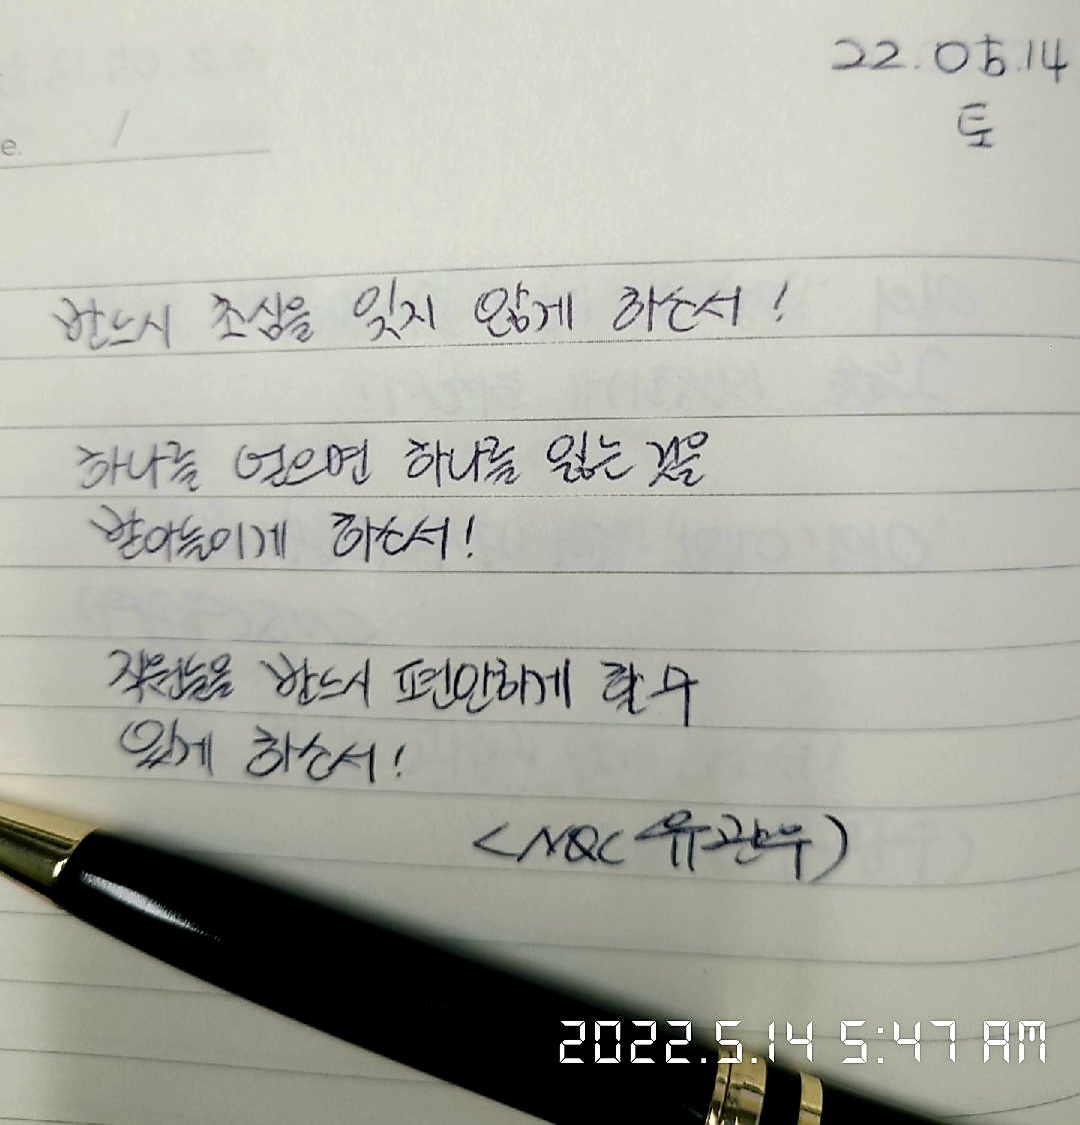 22.05.14
토
e.
반드시 초심을 잊지 않게 하소서!
하나를 얻으면 하나를 잃는 것을
받아들이게 하소서!
직원들을 반드시 편안하게 할 수
있게 하소서!
<NQC 유관우)
2022.5.14 5:47 AM